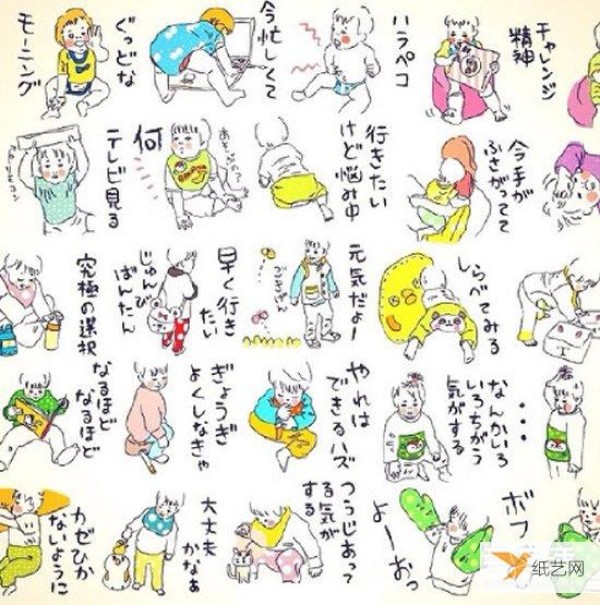 ぐっどな
モーニング
今忙しくて
ハラペコ
チャレンジ
精神
テレビ見る
何
行きたい
けど悩み中
今手が
ふさがってて
究極の選択
早く行き
たい
じゅんび
ばんたん
元気だよー
ごきげん
しらべてみる
なるほど
なるほど
ぎょうぎ
よくしなきゃ
やれば
できるハズ
なんかいろ
いろちがう
気がする
・・・
カゼひか
ないように
大丈夫
かなぁ
つうじあって
る気が
する
よーおっ
ボフ
纸艺网